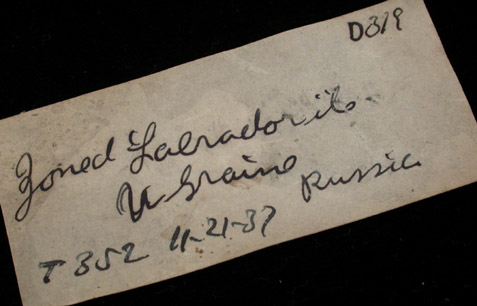 D319
Zoned Labradorite
Ukraine Russia
T 352 11-21-37